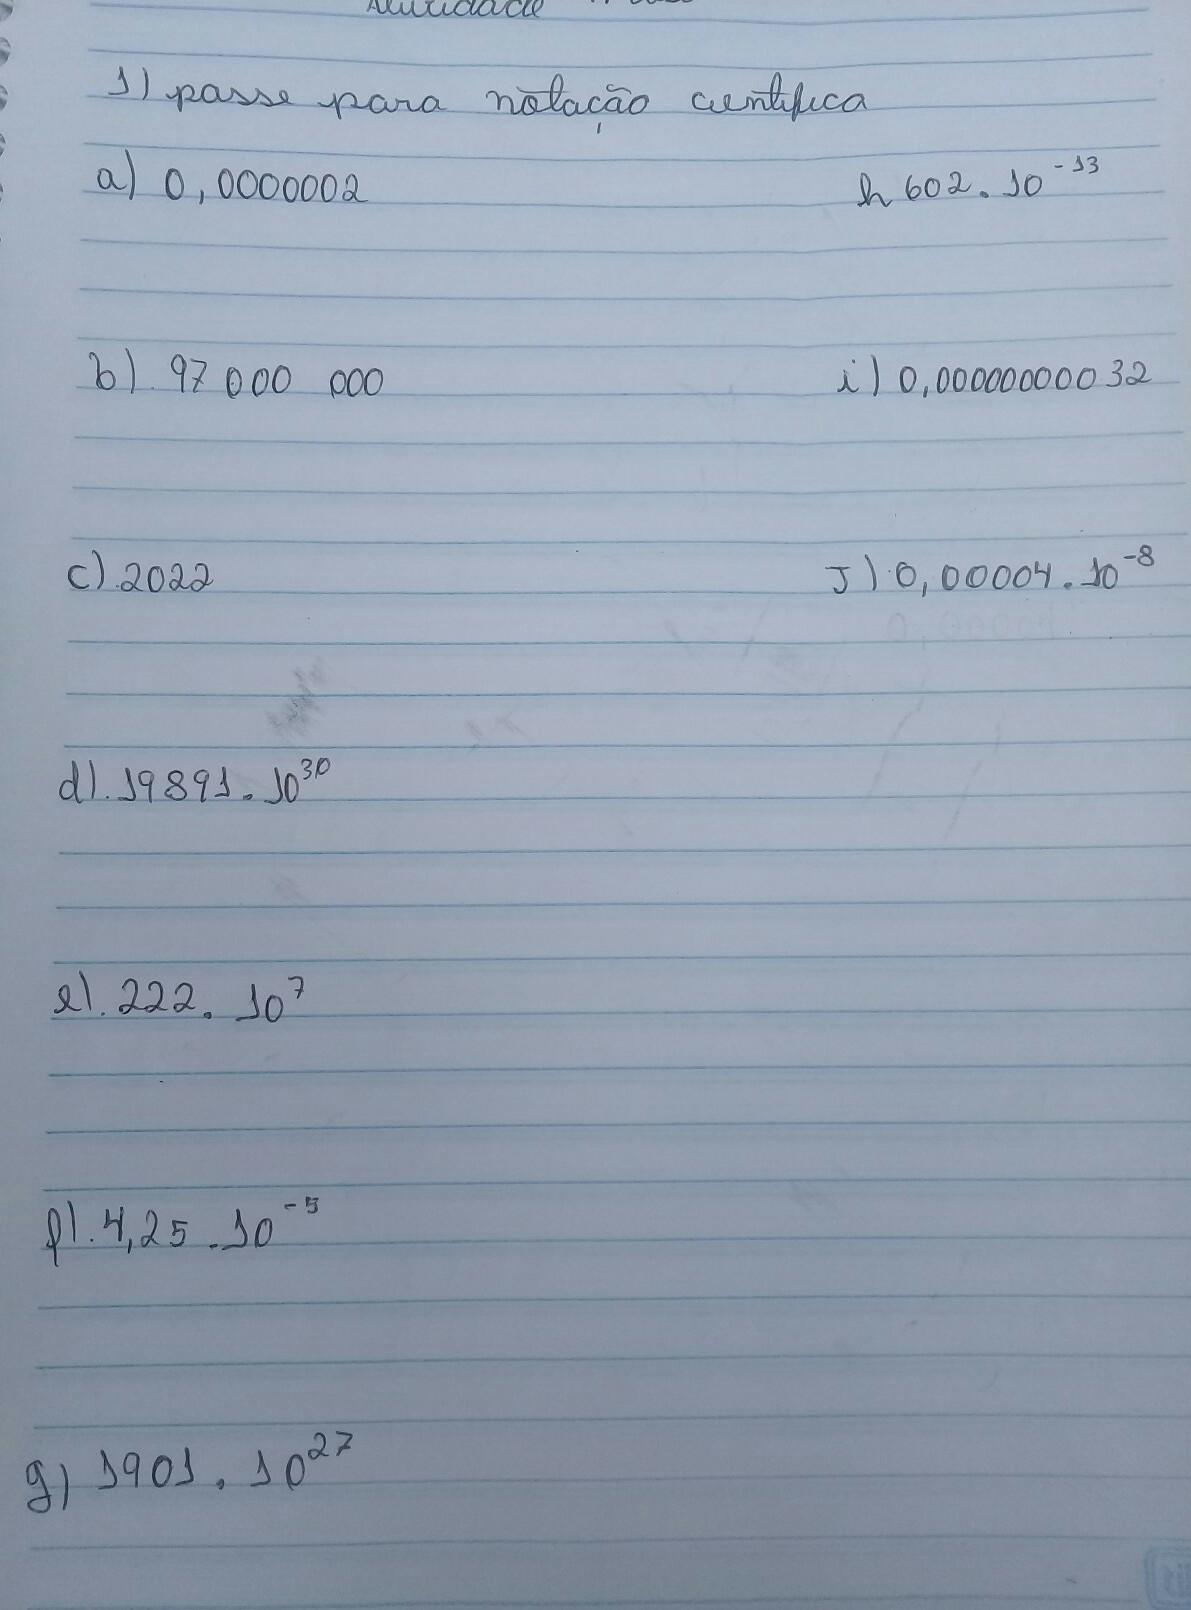 Atividade
1) passe para notação cientifica
a) 0,0000002
h 602. 10⁻¹³
b) 97 000 000
i) 0,00000000032
c) 2022
J) 0,00004. 10⁻⁸
d). 19891. 10³⁰
e). 222. 10⁷
f). 4,25 . 10⁻⁵
g) 1901. 10²⁷